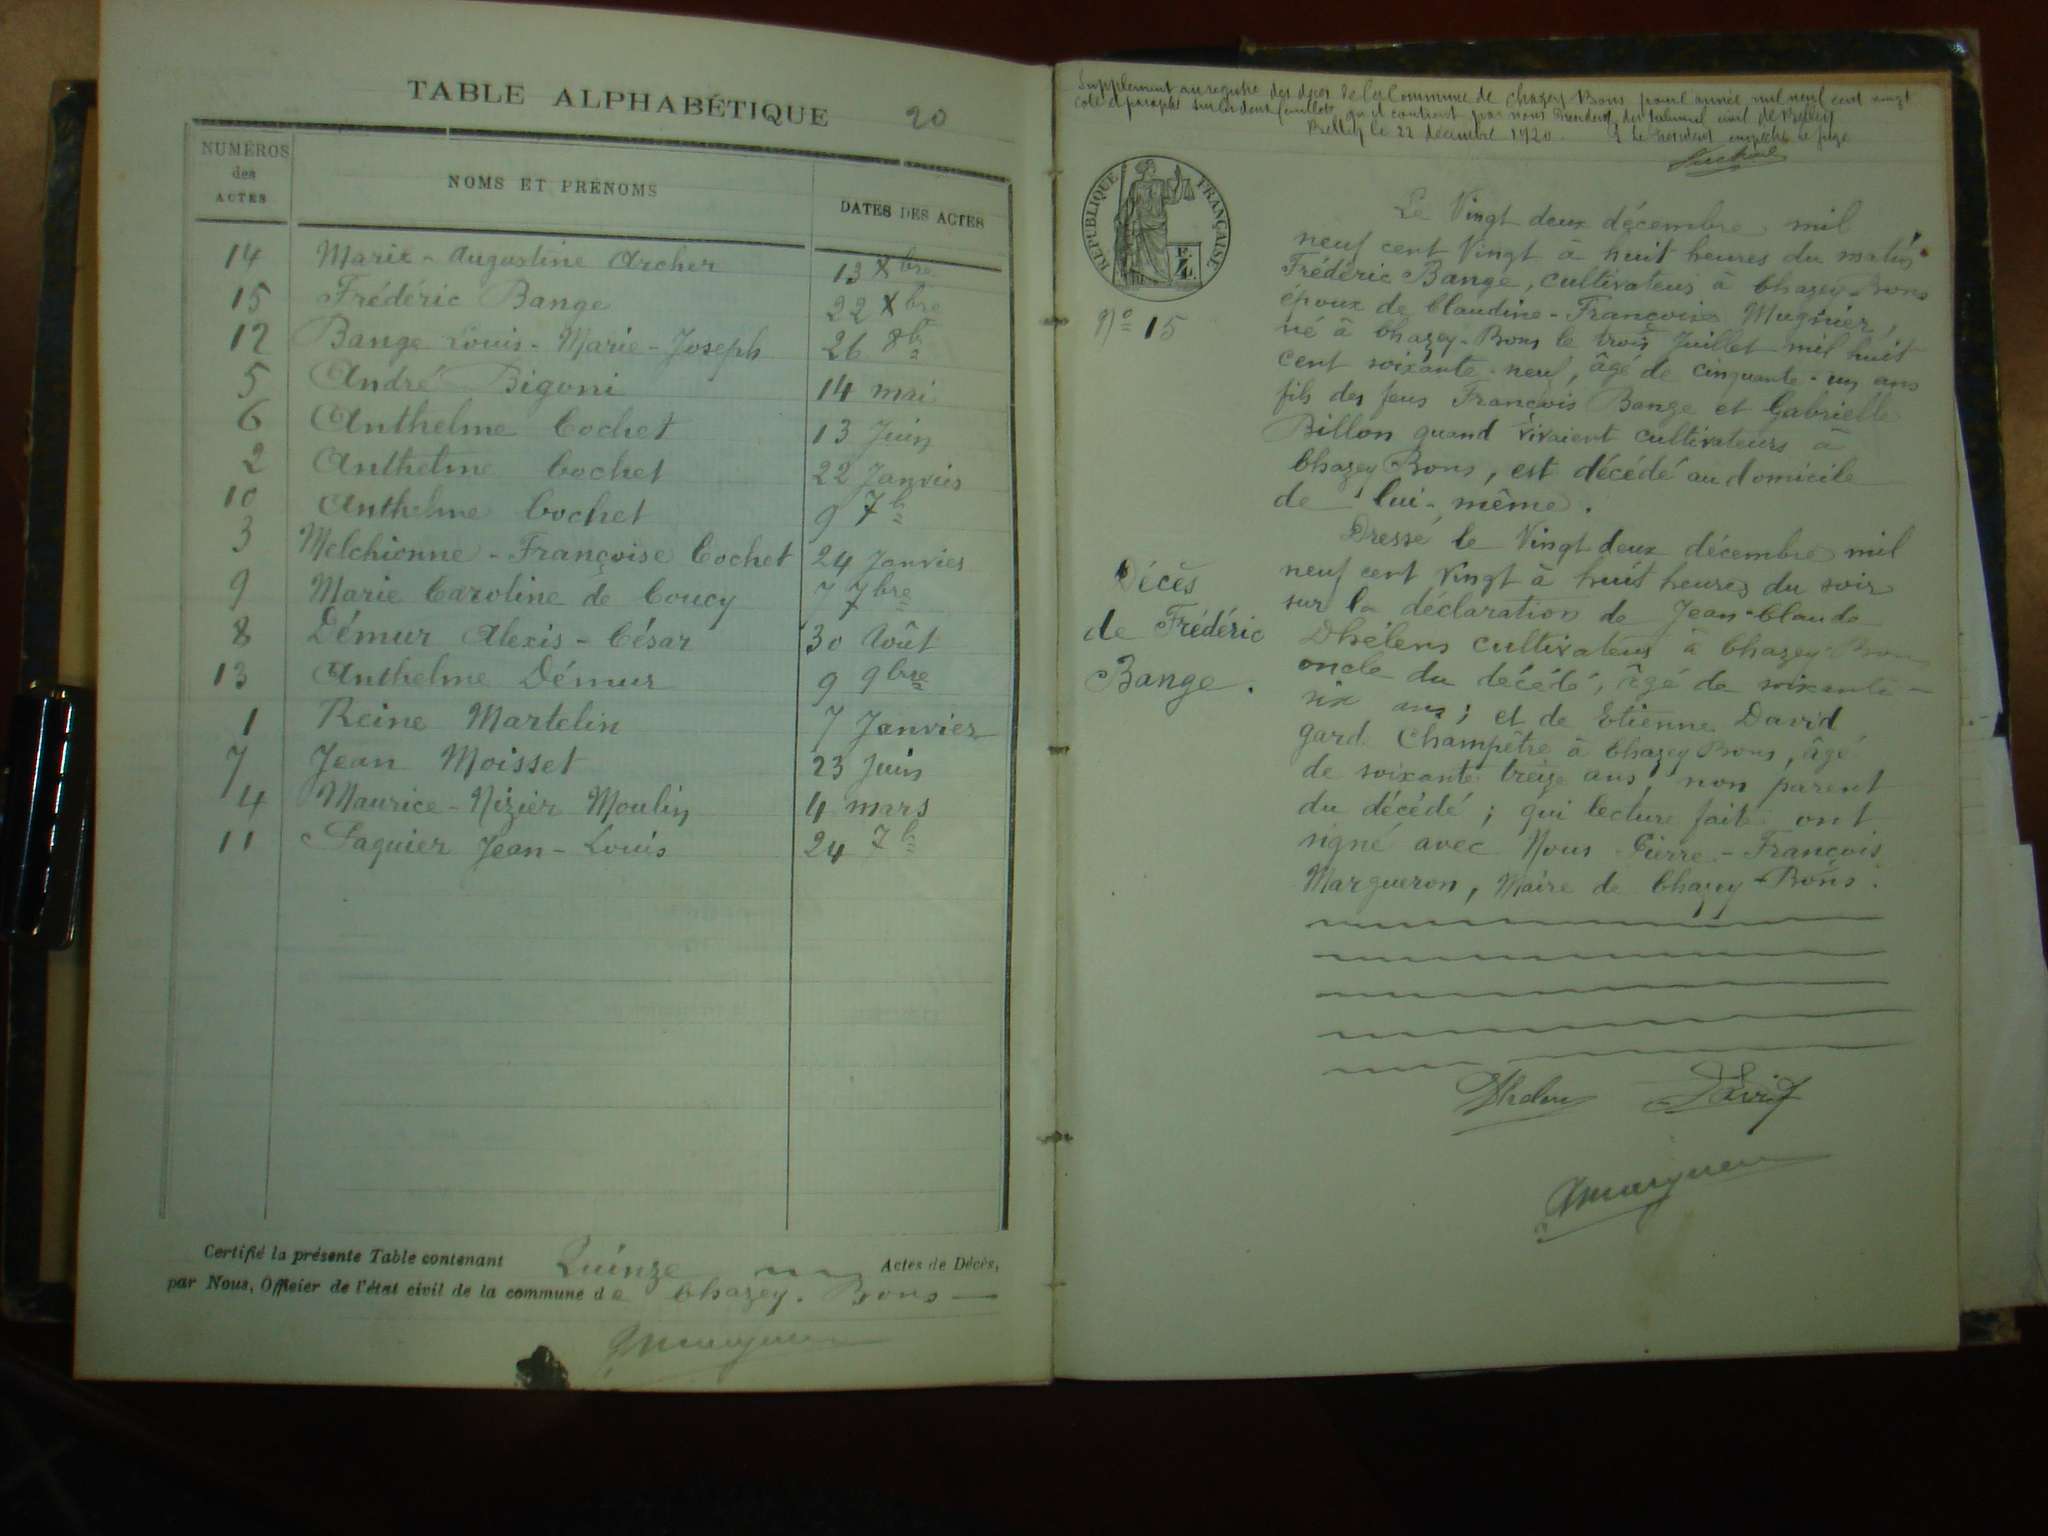 TABLE ALPHABÉTIQUE 20
NUMÉROS
des
ACTES
NOMS ET PRÉNOMS
DATES DES ACTES
14 Marie-Augustine Archer 13 Xbre
15 Frédéric Bange 22 Xbre
12 Bange Louis-Marie-Joseph 26 8b
5 André Bigoni 14 mai
6 Anthelme Cochet 13 Juin
2 Anthelme Cochet 22 Janvier
10 Anthelme Cochet 9 7b
3 Melchionne-Françoise Cochet 24 Janvier
9 Marie Caroline de Coucy 7 7bre
8 Démur Alexis-César 30 Août
13 Anthelme Démur 9 9bre
1 Reine Martelin 7 Janvier
7 Jean Moisset 23 Juin
4 Maurice-Nizier Moulin 4 mars
11 Paquier Jean-Louis 24 7b
Certifié la présente Table contenant Quinze Actes de Décès,
par Nous, Officier de l'état civil de la commune de Chazey-Bons
Supplément au registre des décès de la Commune de Chazey Bons pour l'année mil neuf cent vingt
coté et paraphé sur les deux feuillets qu'il contient par nous Président du tribunal civil de Belley
Belley le 22 décembre 1920. P le Président empêché le juge
RÉPUBLIQUE FRANÇAISE
Nº 15
Le Vingt deux décembre mil
neuf cent Vingt à huit heures du matin
Frédéric Bange, cultivateur à Chazey-Bons
époux de Claudine-Françoise Mugnier,
né à Chazey-Bons le trois Juillet mil huit
cent soixante-neuf, âgé de cinquante-un ans
fils des feus François Bange et Gabrielle
Billon quand vivaient cultivateurs à
Chazey Bons, est décédé au domicile
de lui-même.
Dressé le Vingt deux décembre mil
neuf cent Vingt à huit heures du soir
sur la déclaration de Jean-Claude
Dhélens cultivateur à Chazey-Bons
oncle du décédé, âgé de soixante-
six ans; et de Etienne David
gard Champêtre à Chazey Bons, âgé
de soixante treize ans, non parent
du décédé; qui lecture faite ont
signé avec Nous Pierre-François
Margueron, Maire de Chazey-Bons.
Décès
de Frédéric
Bange.
Dhelens David
Margueron